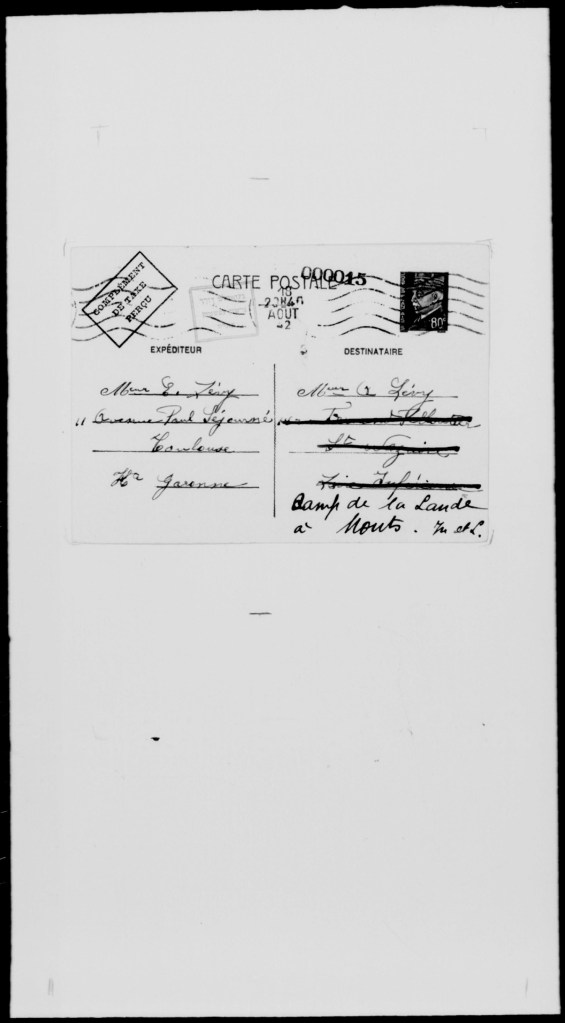 COMPLÉMENT
DE TAXE
PERÇU
CARTE POSTALE
000015
18
20H40
AOUT
42
80c
EXPÉDITEUR
Mme E. Lévy
11 Avenue Paul Séjourné
Toulouse
Hte Garonne
DESTINATAIRE
Mme A Lévy
St Nazaire
Loire Inférieure
Camp de la Lande
à Monts. In et L.